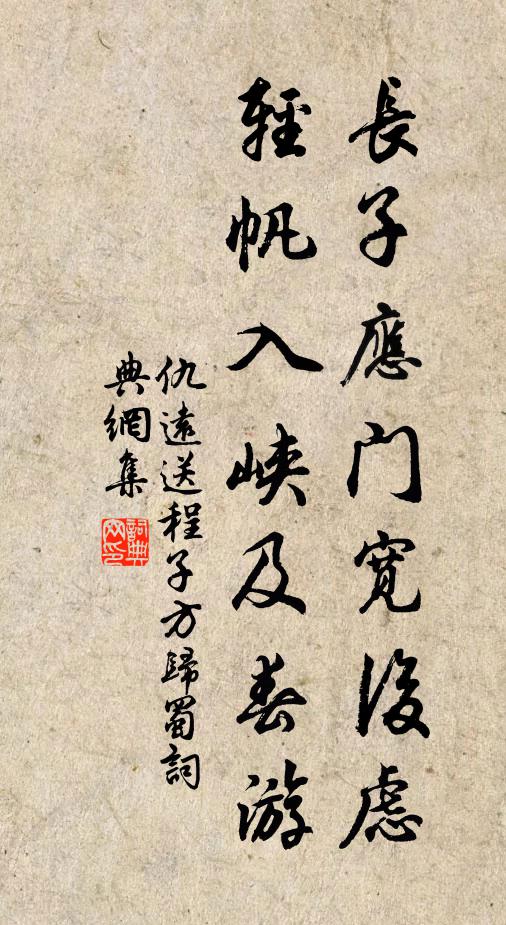 長子應門寬後慮
輕帆入峽及春游
仇遠送程子方歸蜀詞
典網集
詞典
网印